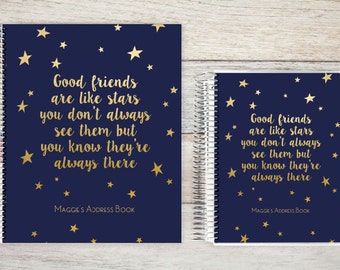 Good friends
are like stars
you don't always
see them but
you know they're
always there
Maggie's Address Book
Good friends
are like stars
you don't always
see them but
you know they're
always there
Maggie's Address Book